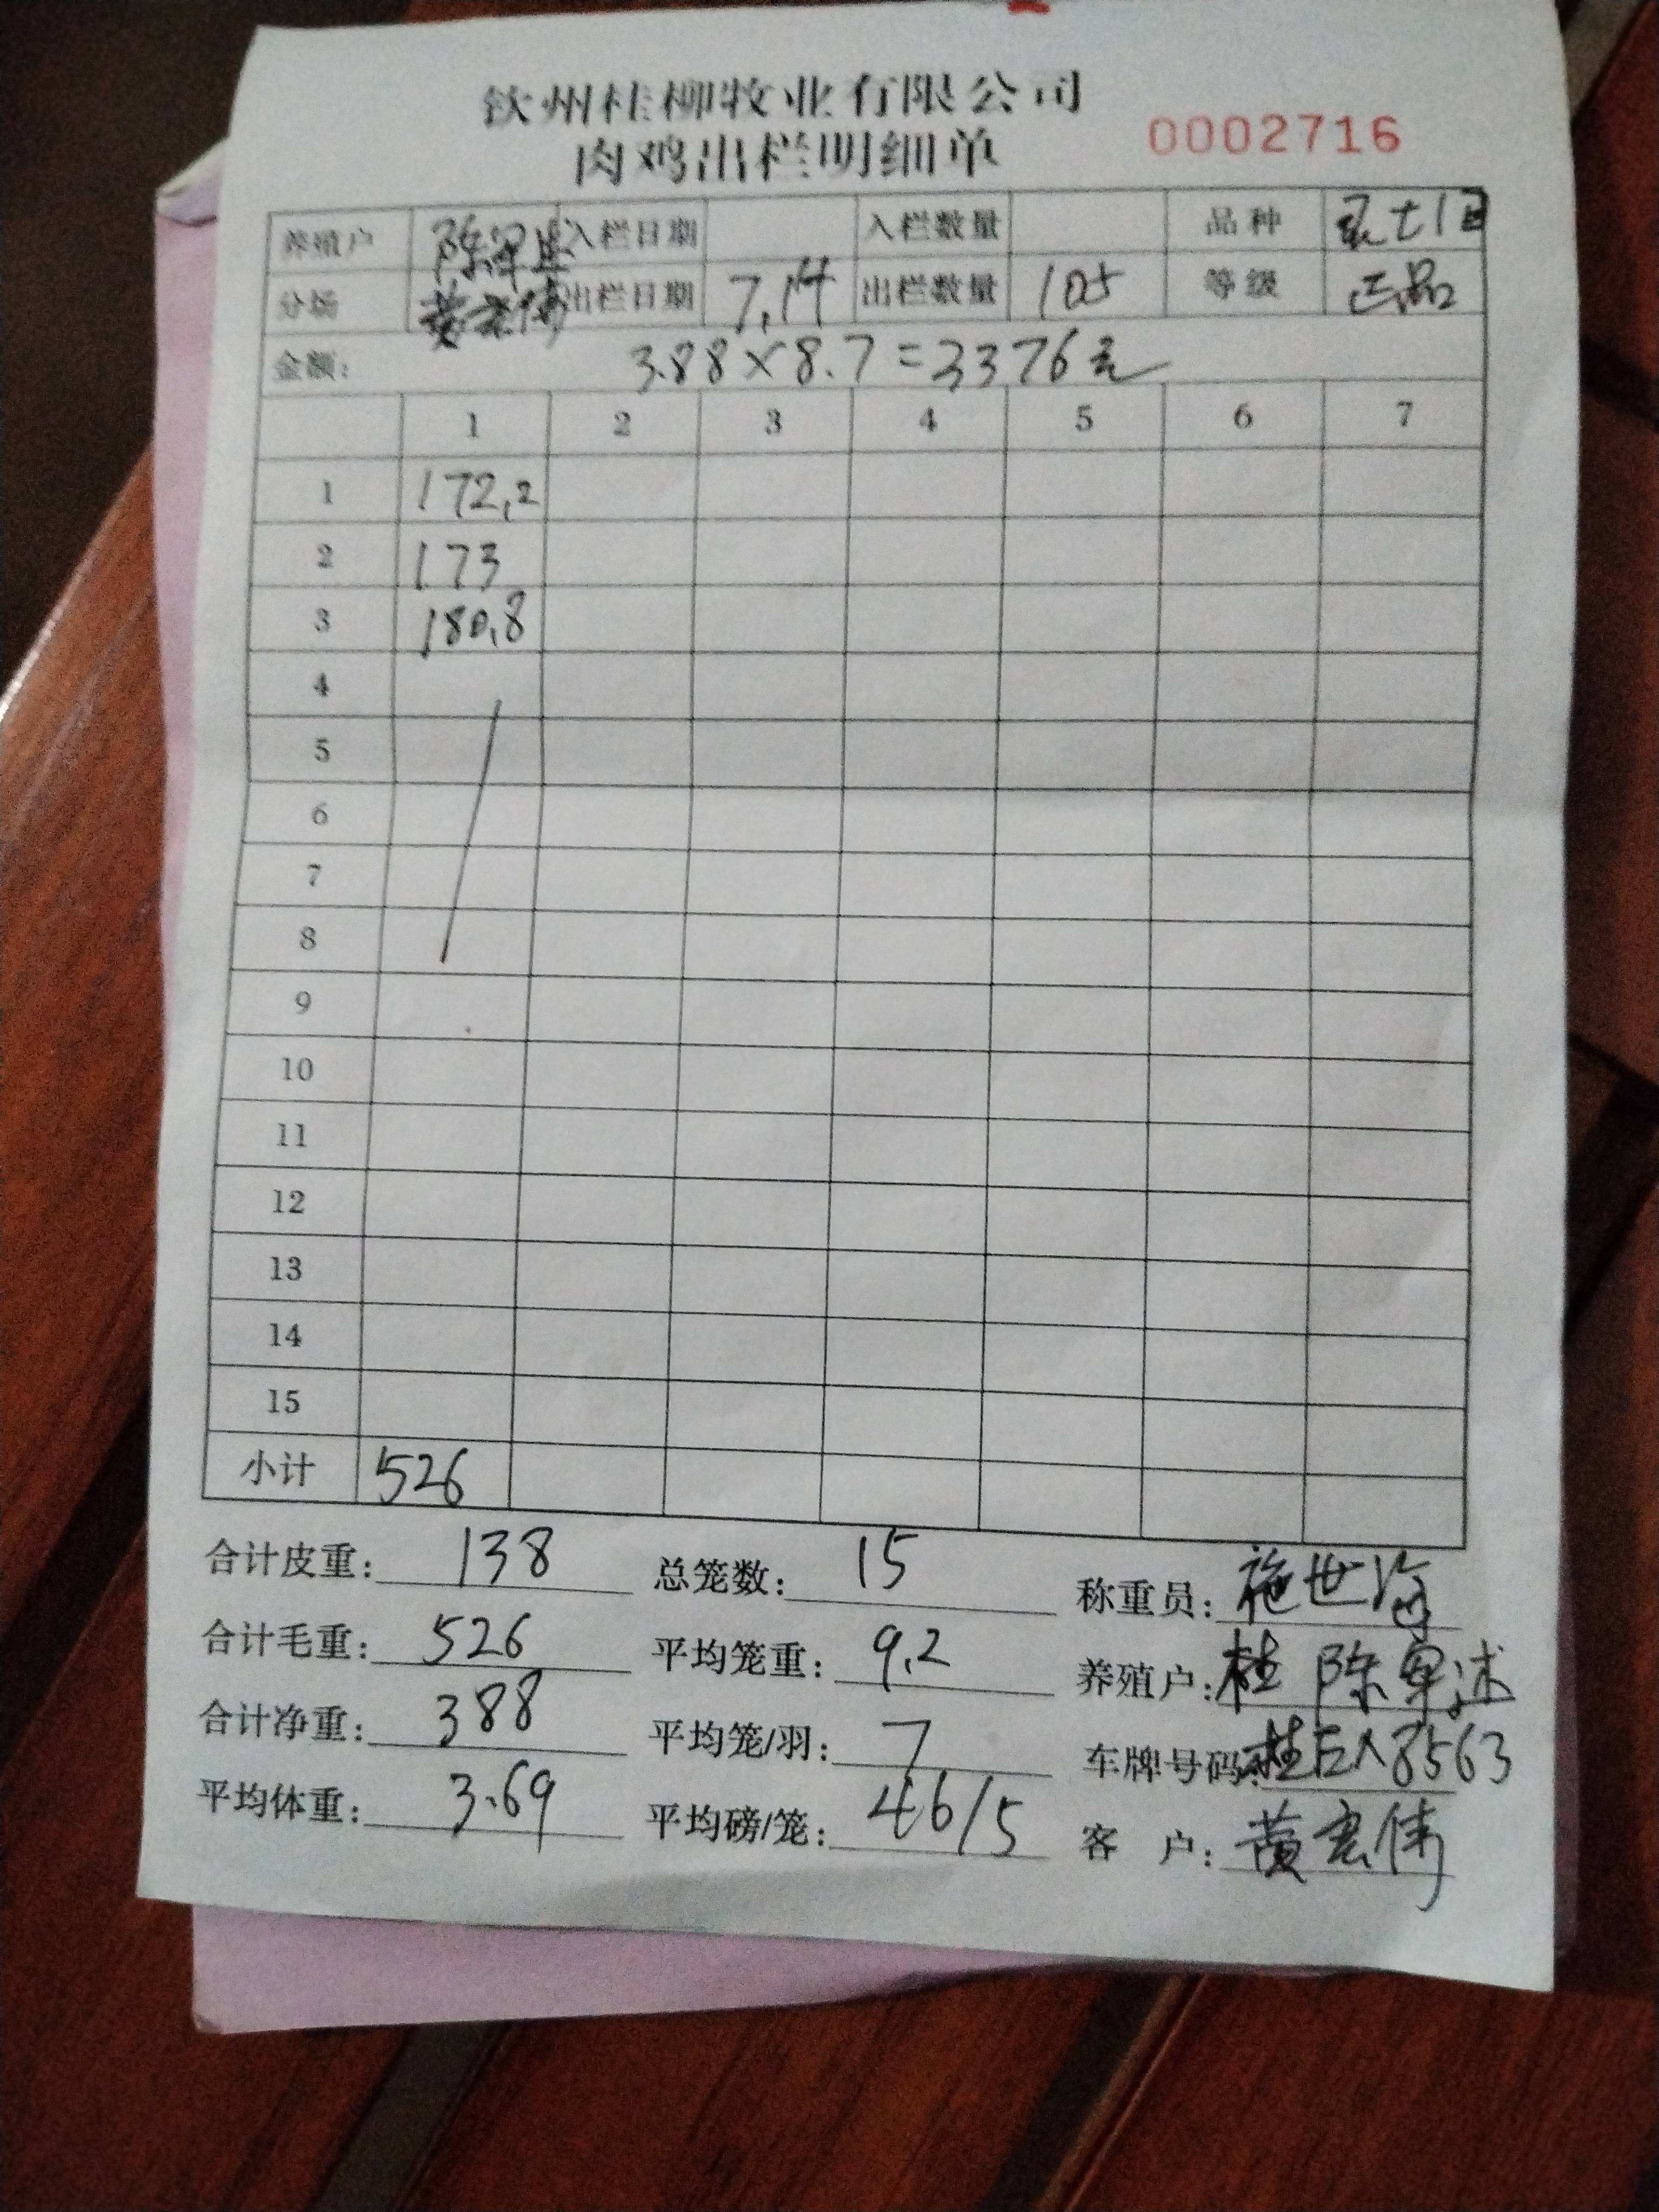 钦州桂柳牧业有限公司
肉鸡出栏明细单 0002716
养殖户 陈军述 入栏日期 入栏数量 品种
分场 黄宏伟 出栏日期 7.14 出栏数量 105 等级 正品
金额: 3.88×8.7=3376元
1 2 3 4 5 6 7
1 172.2
2 173
3 180.8
4
5
6
7
8
9
10
11
12
13
14
15
小计 526
合计皮重: 138 总笼数: 15 称重员: 施世海
合计毛重: 526 平均笼重: 9.2 养殖户: 桂 陈军述
合计净重: 388 平均笼/羽: 7 车牌号码: 8563
平均体重: 3.69 平均磅/笼: 46/5 客 户: 黄宏伟